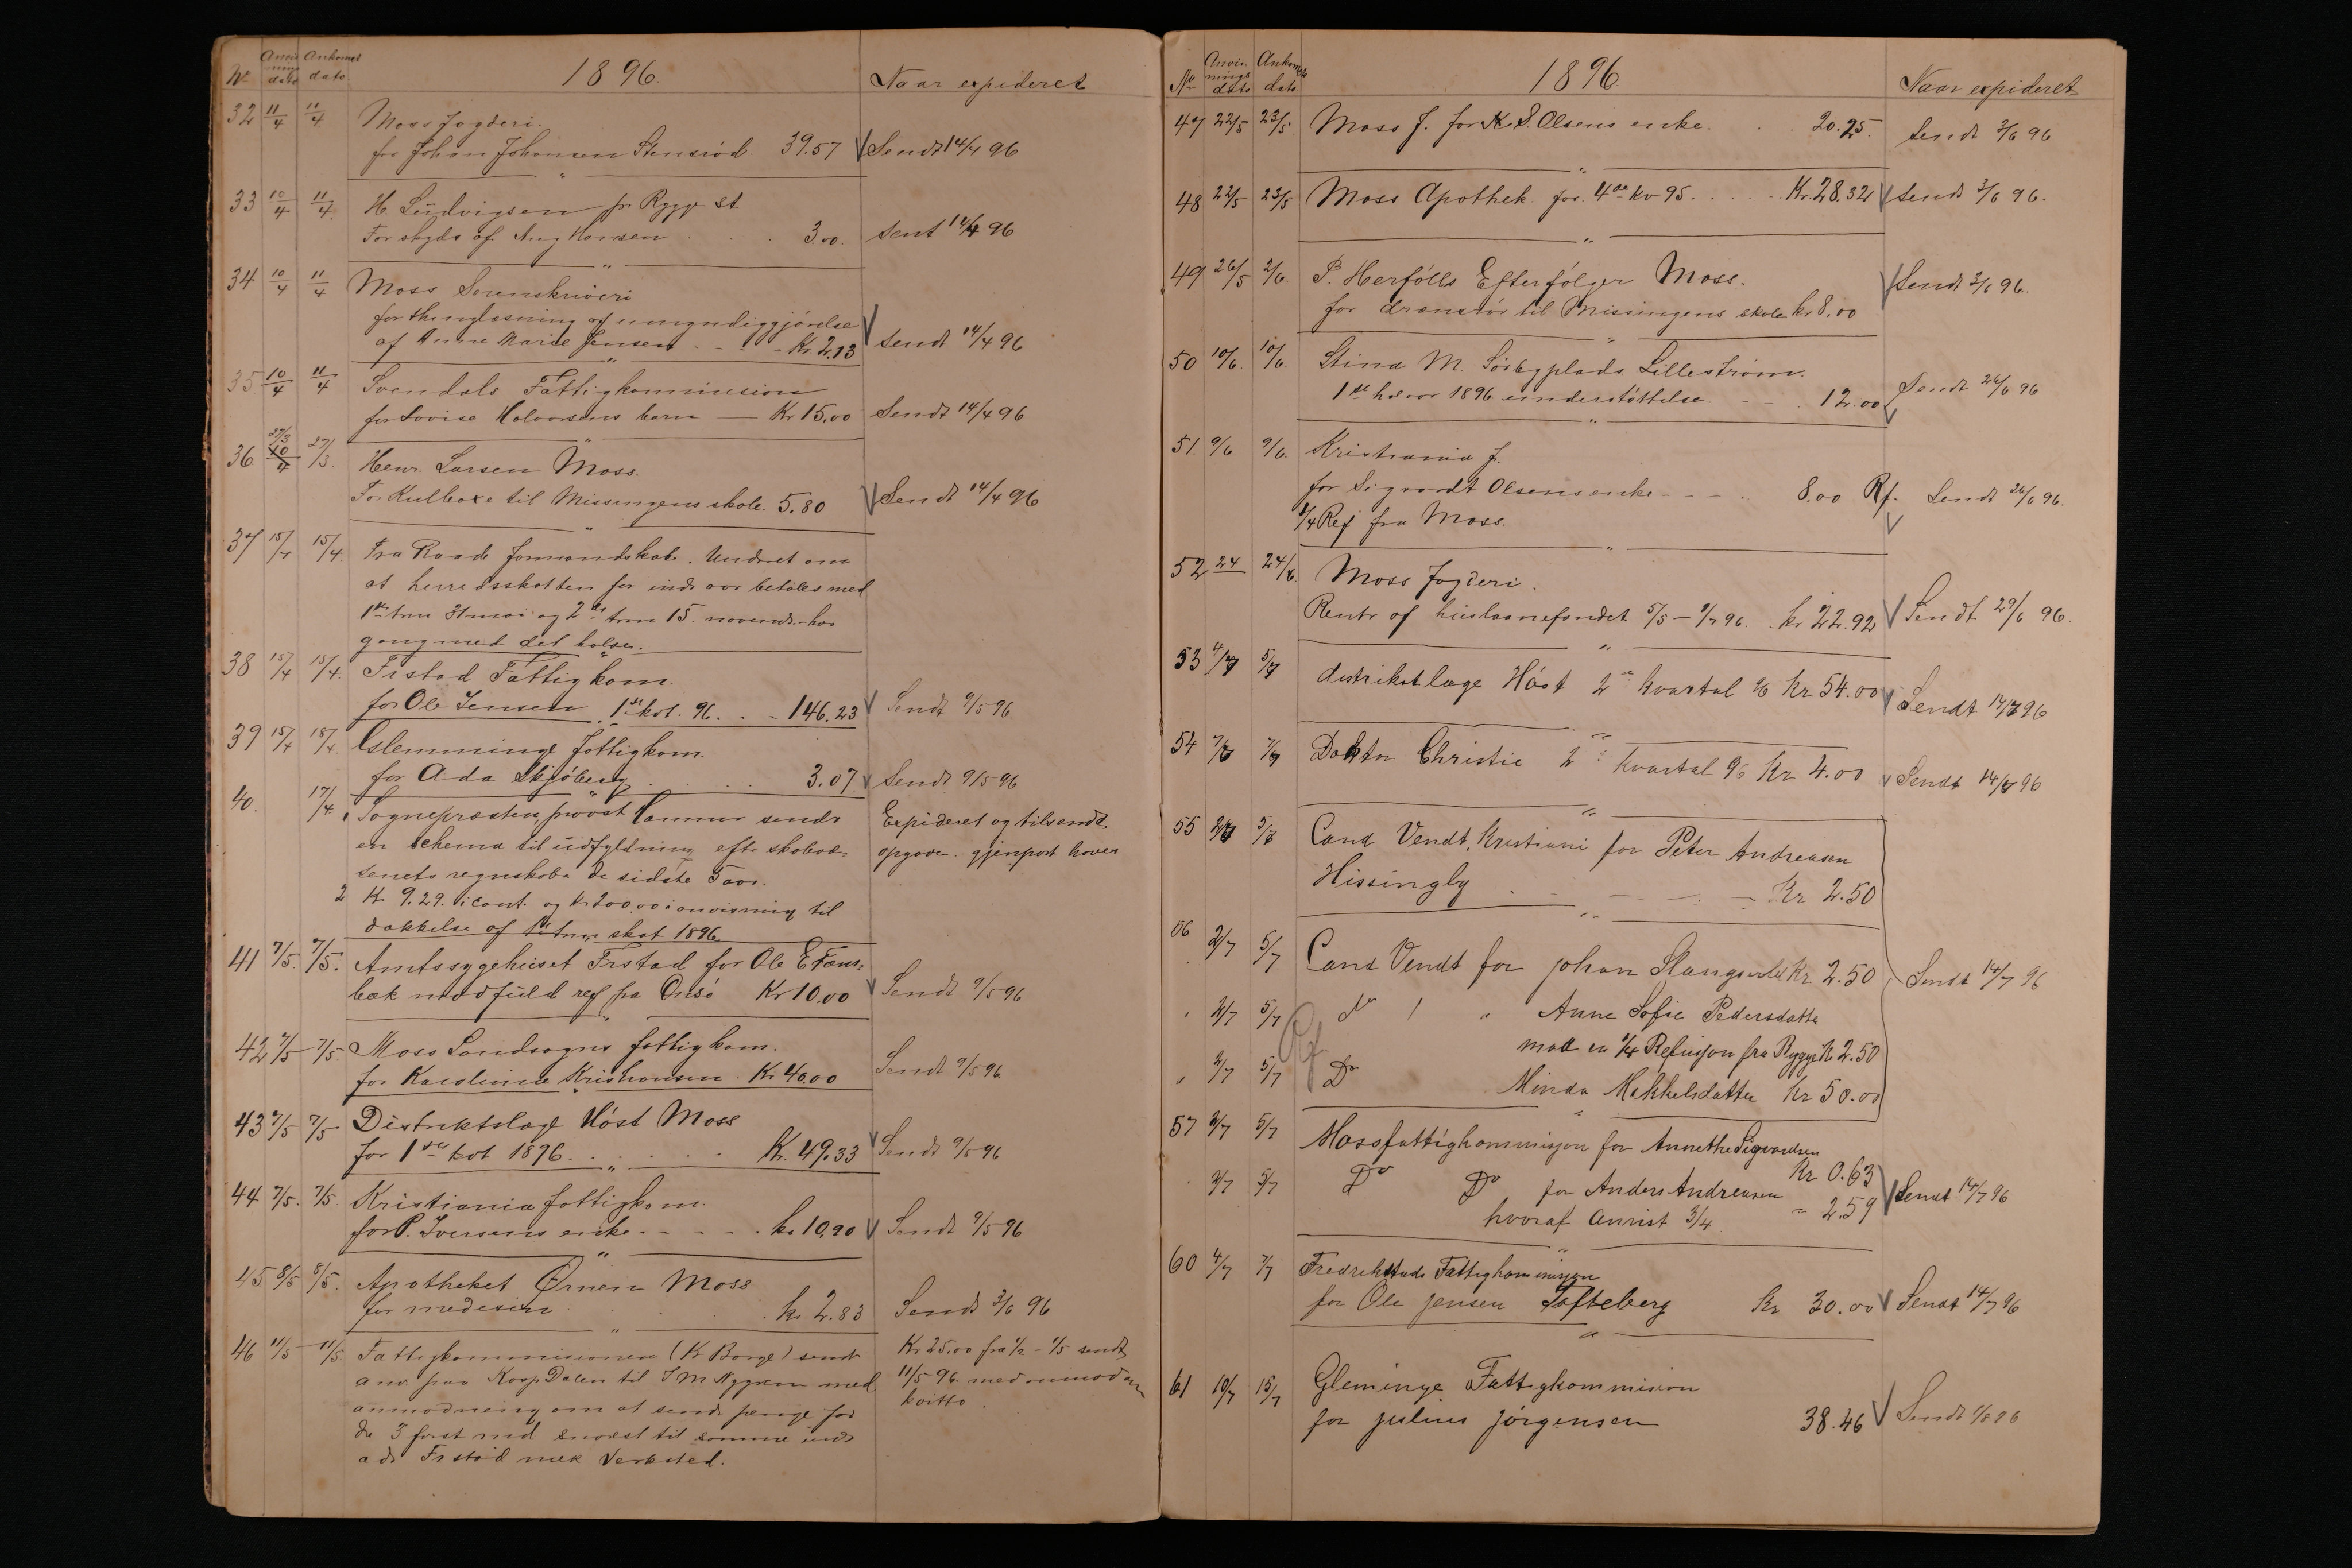 No Anvisnings dato Ankomst dato. 1896. Naar expideret
32 11/4 11/4 Moss Fogderi.
for Johan Johansen Stensrød. 39.57 Sendt 14/4 96
33 10/4 11/4 H. Ludvigsen pr Rygge st
For skyds af Aug Hansen 3.00. sent 14/4 96
34 10/4 11/4 Moss Sorenskriveri
for thinglæsning af umyndiggjørelse
af Anne Marie Jensen - - - Kr. 2.13 sendt 14/4 96
35 10/4 11/4 Svendals Fattigkommission
for Lovise Halvorsens barn — Kr 15.00 Sendt 14/4 96
36. 27/3 27/3. Henr. Larsen Moss.
For Kulboxe til Missingens skole. 5.80 Sendt 14/4 96
37 15/4 15/4. Fra Raade formandskab. Undret om
at herredsskatten for inds aar betales med
1ste trm 31 mai og 2den trm 15. novembr. hver
gang med det halve.
38 15/4 15/4. Frstad Fattigkom.
for Ole Jensen 1ste kvt. 96. . - 146.23 Sendt 9/5 96.
39 15/4 18/4. Glemminge fattigkom.
for Ada Skjøberg 3.07. Sendt 9/5 96
40. 17/4. 1 Sognepræsten, provst sendr
en schema til udfyldning eftr skolevæ-
senets regnskaber de sidste 5 aar. Expideret og tilsendt
opgave. gjenpart haves
2 Kr 9.29. i cont. og kr 200.00 i anvisning til
dækkelse af 1ste trm skat 1896.
41 7/5. 7/5. Amtssygehuset Frstad for Ole E
bæk modfuld ref fra Onsø Kr 10.00 Sendt 9/5 96
42 7/5 7/5. Moss Landsogns fattigkom.
for Karolinne Kristiansen. Kr 40.00 Sendt 9/5 96
43 7/5 7/5 Distriktslæge Høst Moss
for 1ste kvt 1896. . . . . Kr. 49.33 Sendt 9/5 96
44 7/5. 7/5. Kristiania fattigkom.
for P. Iversens enke. - - - - . kr 10.90 Sendt 9/5 96
45 8/5 8/5. Apotheket Ørnen Moss
for medesin . kr 2.83 Sendt 3/6 96
46 11/5 11/5. Fattigkommissionen (Kr Borge) sendt
anv. paa Dalen til I M Nygren med
anmodning om at sende penge for
de 3 først md snarest til samme inds
ads Frstad mek Verksted.
Kr 25.00 fra 1/2 - 1/5 sendt
11/5 96. med anmodn
kvitto.
No Anvisnings dato Ankomst dato 1896. Naar expideret
47 22/5 23/5 Moss f. for S. Olsens enke. . . 20.25. Sendt 3/6 96
48 22/5 23/5 Moss Apothek. for. 4de kv 95. . . . . Kr. 28.32 sendt 3/6 96.
49 26/5 2/6. P. Herfølls Efterfølger Moss.
for drænsrør til Missingens skole kr 8.00 Sendt 3/6 96.
50 10/6. 10/6. Stina M. Søsbyplads Lillestrøm.
1ste halvaar 1896 understøttelse. - - . 12.00 Sendt 26/6 96
51. 9/6 9/6. Kristiania f.
for Sigvardt Olsens enke - - - . 8.00 Rf. Sendt 26/6 96.
3/4 Ref fra Moss.
52 24 24/6. Moss Fogderi.
Rentr af huslaanefondet 5/5 – 1/7 96. kr 22.92 Sendt 29/6 96.
53 4/7 5/7 distriktslæge Høst 2det kvartal 96 Kr 54.00 Sendt 14/7 96
54 7/7 7/7 Doktor Christie 2 kvartal 96 Kr 4.00 Sendt 14/7 96
55 2/7 5/7 Cand Vendt, Kristiani for Peter Andreasen
Hissingby . - — - . - Kr 2.50
56 2/7 5/7 Cand Vendt for Johan Kr 2.50 Sendt 14/7 96
" 2/7 5/7 do " Anne Sofie Pedersdatte
mod en 1/4 Refusjon fra Rygge Kr 2.50
Rf
" 2/7 5/7 Do Minda Mekkelsdatter Kr 50.00
57 3/7 5/7 Moss fattigkommisjon for Annethe Sigvardsen
Kr 0.63
3/7 5/7 Do Do for Anders Andreasen " 2.59 Sendt 14/7 96
hvoraf anvist 3/4
60 4/7 7/7 Fredrikstads Fattigkommisjon
for Ole Jensen Tofteberg Kr 30.00 Sendt 14/7 96
61 10/7 15/7 Gleminge Fattigkommision
for Julius Jørgensen 38.46 Sendt 1/8 96